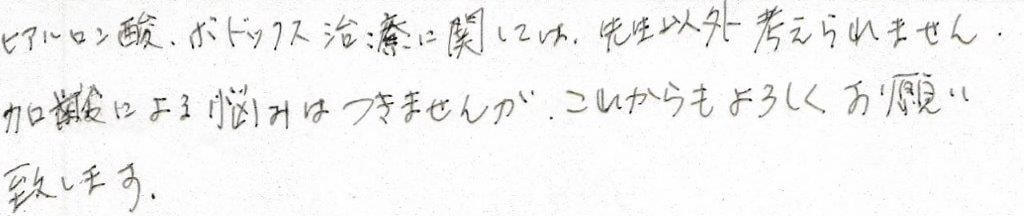 ヒアルロン酸、ボトックス治療に関しては、先生以外考えられません.
加齢による悩みはつきませんが、これからもよろしくお願い
致します.